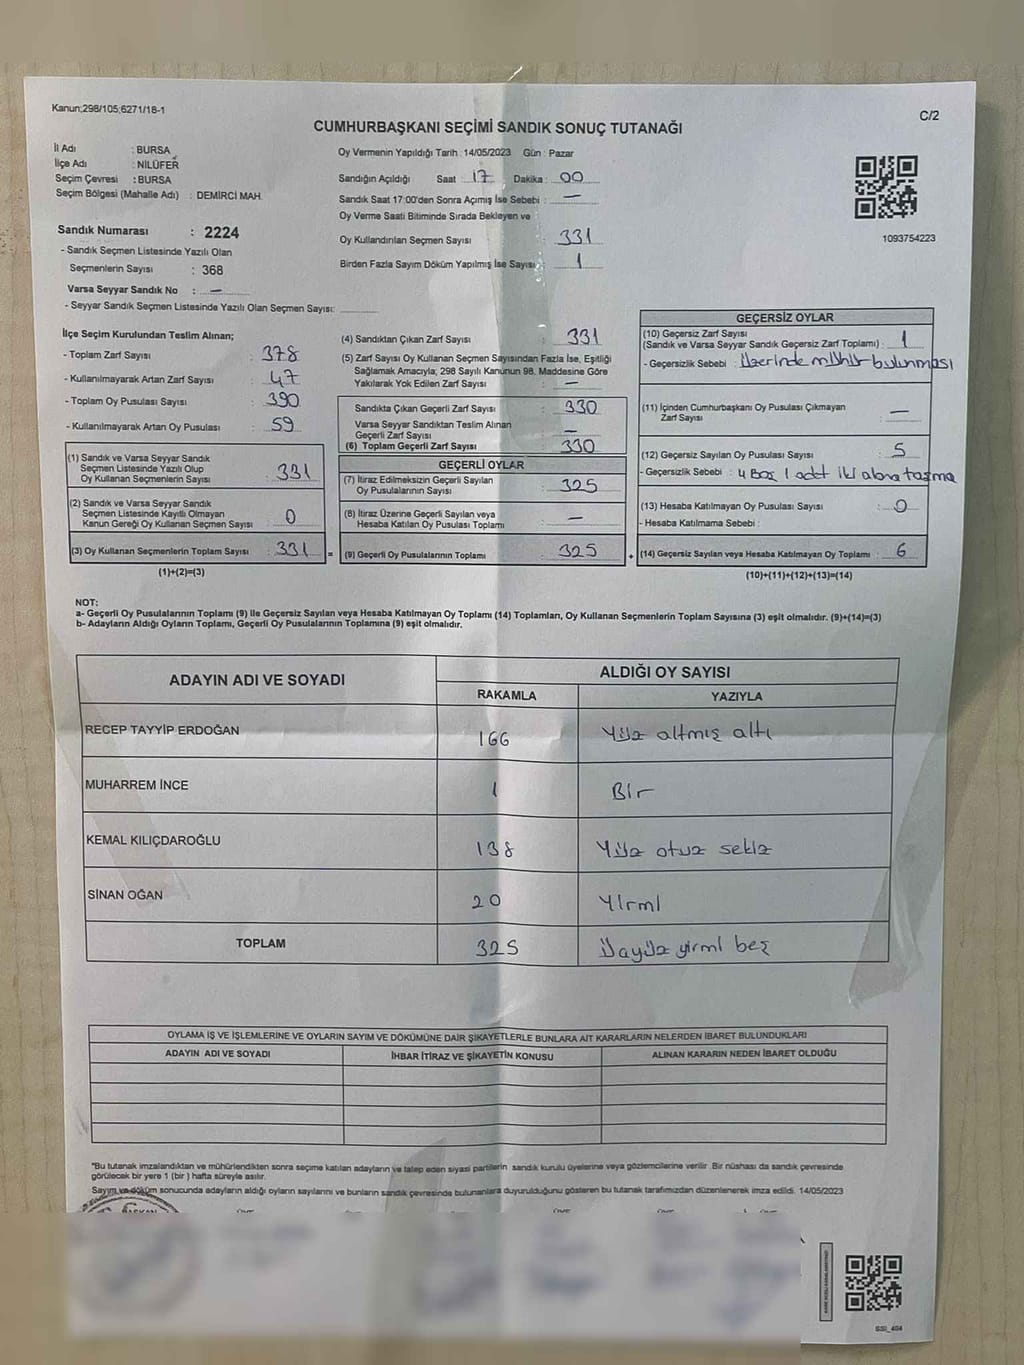 Kanun:298/105;6271/18-1
C/2
CUMHURBAŞKANI SEÇİMİ SANDIK SONUÇ TUTANAĞI
İl Adı : BURSA
İlçe Adı : NİLÜFER
Seçim Çevresi : BURSA
Seçim Bölgesi (Mahalle Adı) : DEMİRCİ MAH.
Sandık Numarası : 2224
- Sandık Seçmen Listesinde Yazılı Olan
Seçmenlerin Sayısı : 368
Varsa Seyyar Sandık No : —
- Seyyar Sandık Seçmen Listesinde Yazılı Olan Seçmen Sayısı:
Oy Vermenin Yapıldığı Tarih : 14/05/2023 Gün : Pazar
Sandığın Açıldığı Saat : 17 Dakika : 00
Sandık Saat 17:00'den Sonra Açımış İse Sebebi : —
Oy Verme Saati Bitiminde Sırada Bekleyen ve
Oy Kullandırılan Seçmen Sayısı : 331
Birden Fazla Sayım Döküm Yapılmış İse Sayısı : 1
1093754223
İlçe Seçim Kurulundan Teslim Alınan;
- Toplam Zarf Sayısı : 378
- Kullanılmayarak Artan Zarf Sayısı : 47
- Toplam Oy Pusulası Sayısı : 390
- Kullanılmayarak Artan Oy Pusulası : 59
(1) Sandık ve Varsa Seyyar Sandık
Seçmen Listesinde Yazılı Olup
Oy Kullanan Seçmenlerin Sayısı : 331
(2) Sandık ve Varsa Seyyar Sandık
Seçmen Listesinde Kayıtlı Olmayan
Kanun Gereği Oy Kullanan Seçmen Sayısı : 0
(3) Oy Kullanan Seçmenlerin Toplam Sayısı : 331 =
(1)+(2)=(3)
(4) Sandıktan Çıkan Zarf Sayısı : 331
(5) Zarf Sayısı Oy Kullanan Seçmen Sayısından Fazla İse, Eşitliği
Sağlamak Amacıyla; 298 Sayılı Kanunun 98. Maddesine Göre
Yakılarak Yok Edilen Zarf Sayısı : —
Sandıkta Çıkan Geçerli Zarf Sayısı : 330
Varsa Seyyar Sandıktan Teslim Alınan
Geçerli Zarf Sayısı : —
(6) Toplam Geçerli Zarf Sayısı : 330
GEÇERLİ OYLAR
(7) İtiraz Edilmeksizin Geçerli Sayılan
Oy Pusulalarının Sayısı : 325
(8) İtiraz Üzerine Geçerli Sayılan veya
Hesaba Katılan Oy Pusulası Toplamı : —
(9) Geçerli Oy Pusulalarının Toplamı : 325 +
GEÇERSİZ OYLAR
(10) Geçersiz Zarf Sayısı
(Sandık ve Varsa Seyyar Sandık Geçersiz Zarf Toplamı) : 1
- Geçersizlik Sebebi : Üzerinde mühür bulunması
(11) İçinden Cumhurbaşkanı Oy Pusulası Çıkmayan
Zarf Sayısı : —
(12) Geçersiz Sayılan Oy Pusulası Sayısı : 5
- Geçersizlik Sebebi : 4 Boş 1 adet iki alana taşma
(13) Hesaba Katılmayan Oy Pusulası Sayısı : 0
- Hesaba Katılmama Sebebi :
(14) Geçersiz Sayılan veya Hesaba Katılmayan Oy Toplamı : 6
(10)+(11)+(12)+(13)=(14)
NOT:
a- Geçerli Oy Pusulalarının Toplamı (9) ile Geçersiz Sayılan veya Hesaba Katılmayan Oy Toplamı (14) Toplamları, Oy Kullanan Seçmenlerin Toplam Sayısına (3) eşit olmalıdır. (9)+(14)=(3)
b- Adayların Aldığı Oyların Toplamı, Geçerli Oy Pusulalarının Toplamına (9) eşit olmalıdır.
ADAYIN ADI VE SOYADI
ALDIĞI OY SAYISI
RAKAMLA YAZIYLA
RECEP TAYYİP ERDOĞAN 166 Yüz altmış altı
MUHARREM İNCE 1 Bir
KEMAL KILIÇDAROĞLU 138 Yüz otuz sekiz
SİNAN OĞAN 20 Yirmi
TOPLAM 325 Üçyüz yirmi beş
OYLAMA İŞ VE İŞLEMLERİNE VE OYLARIN SAYIM VE DÖKÜMÜNE DAİR ŞİKAYETLERLE BUNLARA AİT KARARLARIN NELERDEN İBARET BULUNDUKLARI
ADAYIN ADI VE SOYADI İHBAR İTİRAZ VE ŞİKAYETİN KONUSU ALINAN KARARIN NEDEN İBARET OLDUĞU
*Bu tutanak imzalandıktan ve mühürlendikten sonra seçime katılan adayların ve talep eden siyasi partilerin sandık kurulu üyelerine veya gözlemcilerine verilir. Bir nüshası da sandık çevresinde
görülecek bir yere 1 (bir) hafta süreyle asılır.
Sayım ve döküm sonucunda adayların aldığı oyların sayılarını ve bunların sandık çevresinde bulunanlara duyurulduğunu gösteren bu tutanak tarafımızdan düzenlenerek imza edildi. 14/05/2023
BAŞKAN
SSI_404